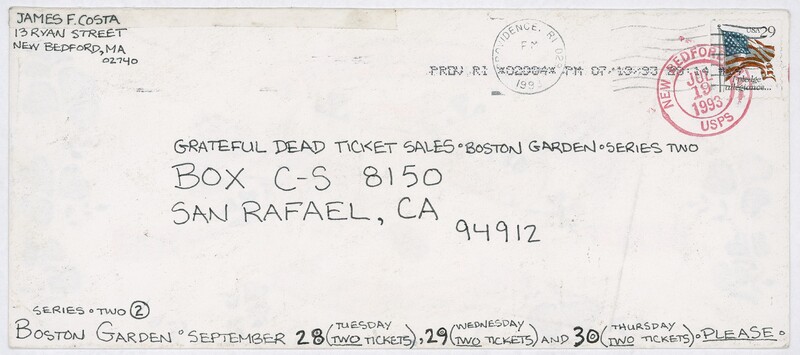 JAMES F. COSTA
13 RYAN STREET
NEW BEDFORD, MA
02740
PROVIDENCE, RI
1993
PROV RI *02904* PM 07-19-93
USA 29
I pledge
allegiance...
NEW BEDFORD
JUL
19
1993
USPS
GRATEFUL DEAD TICKET SALES • BOSTON GARDEN • SERIES TWO
BOX C-S 8150
SAN RAFAEL, CA
94912
SERIES • TWO ②
BOSTON GARDEN • SEPTEMBER 28 (TUESDAY TWO TICKETS), 29 (WEDNESDAY TWO TICKETS) AND 30 (THURSDAY TWO TICKETS) • PLEASE •